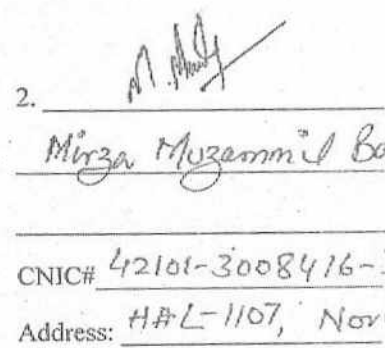 2.
Mirza Muzammil Ba
CNIC# 42101-3008416-
Address: H#L-1107, Nor